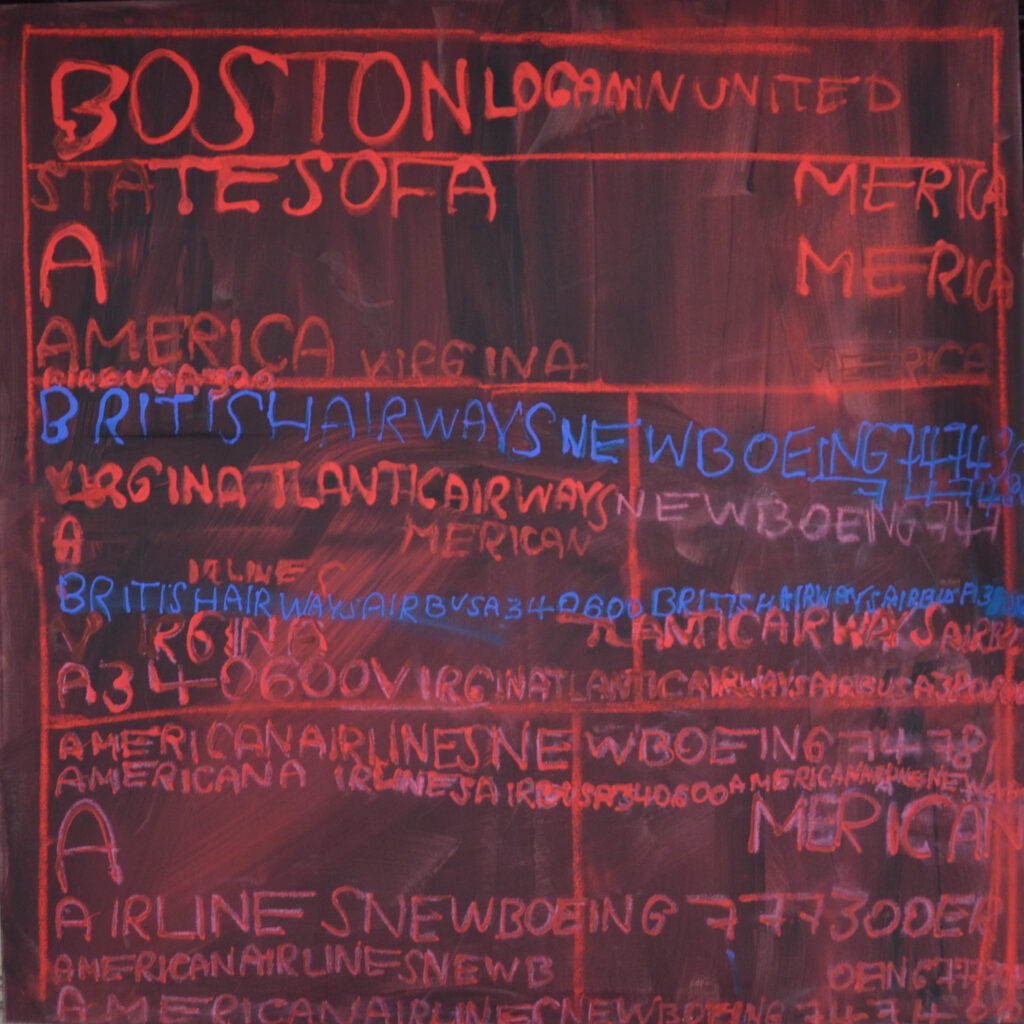 BOSTON LOGAMN UNITED
STATESOFA MERICA
A MERICA
AMERICA VIRGINA MERICA
AIRBUSA320
BRITISHAIRWAYSNEWBOEING74743
VIRGINATLANTICAIRWAYSNEWBOEING747
A MERICAN
IRLINES
BRITISHAIRWAYSAIRBUSA340600 BRITISHAIRWAYSAIRBUSA3
VIRGINA TLANTICAIRWAYSAIRBUS
A340600VIRGINATLANTICAIRWAYSAIRBUSA3
AMERICANAIRLINESNEWBOEING7478
AMERICANAIRLINESAIRBUSA340600AMERICANAIRLINESNEW
A MERICAN
AIRLINESNEWBOEING777300ER
AMERICANAIRLINESNEWB OEING777
AMERICANAIRLINESNEWBOEING7474